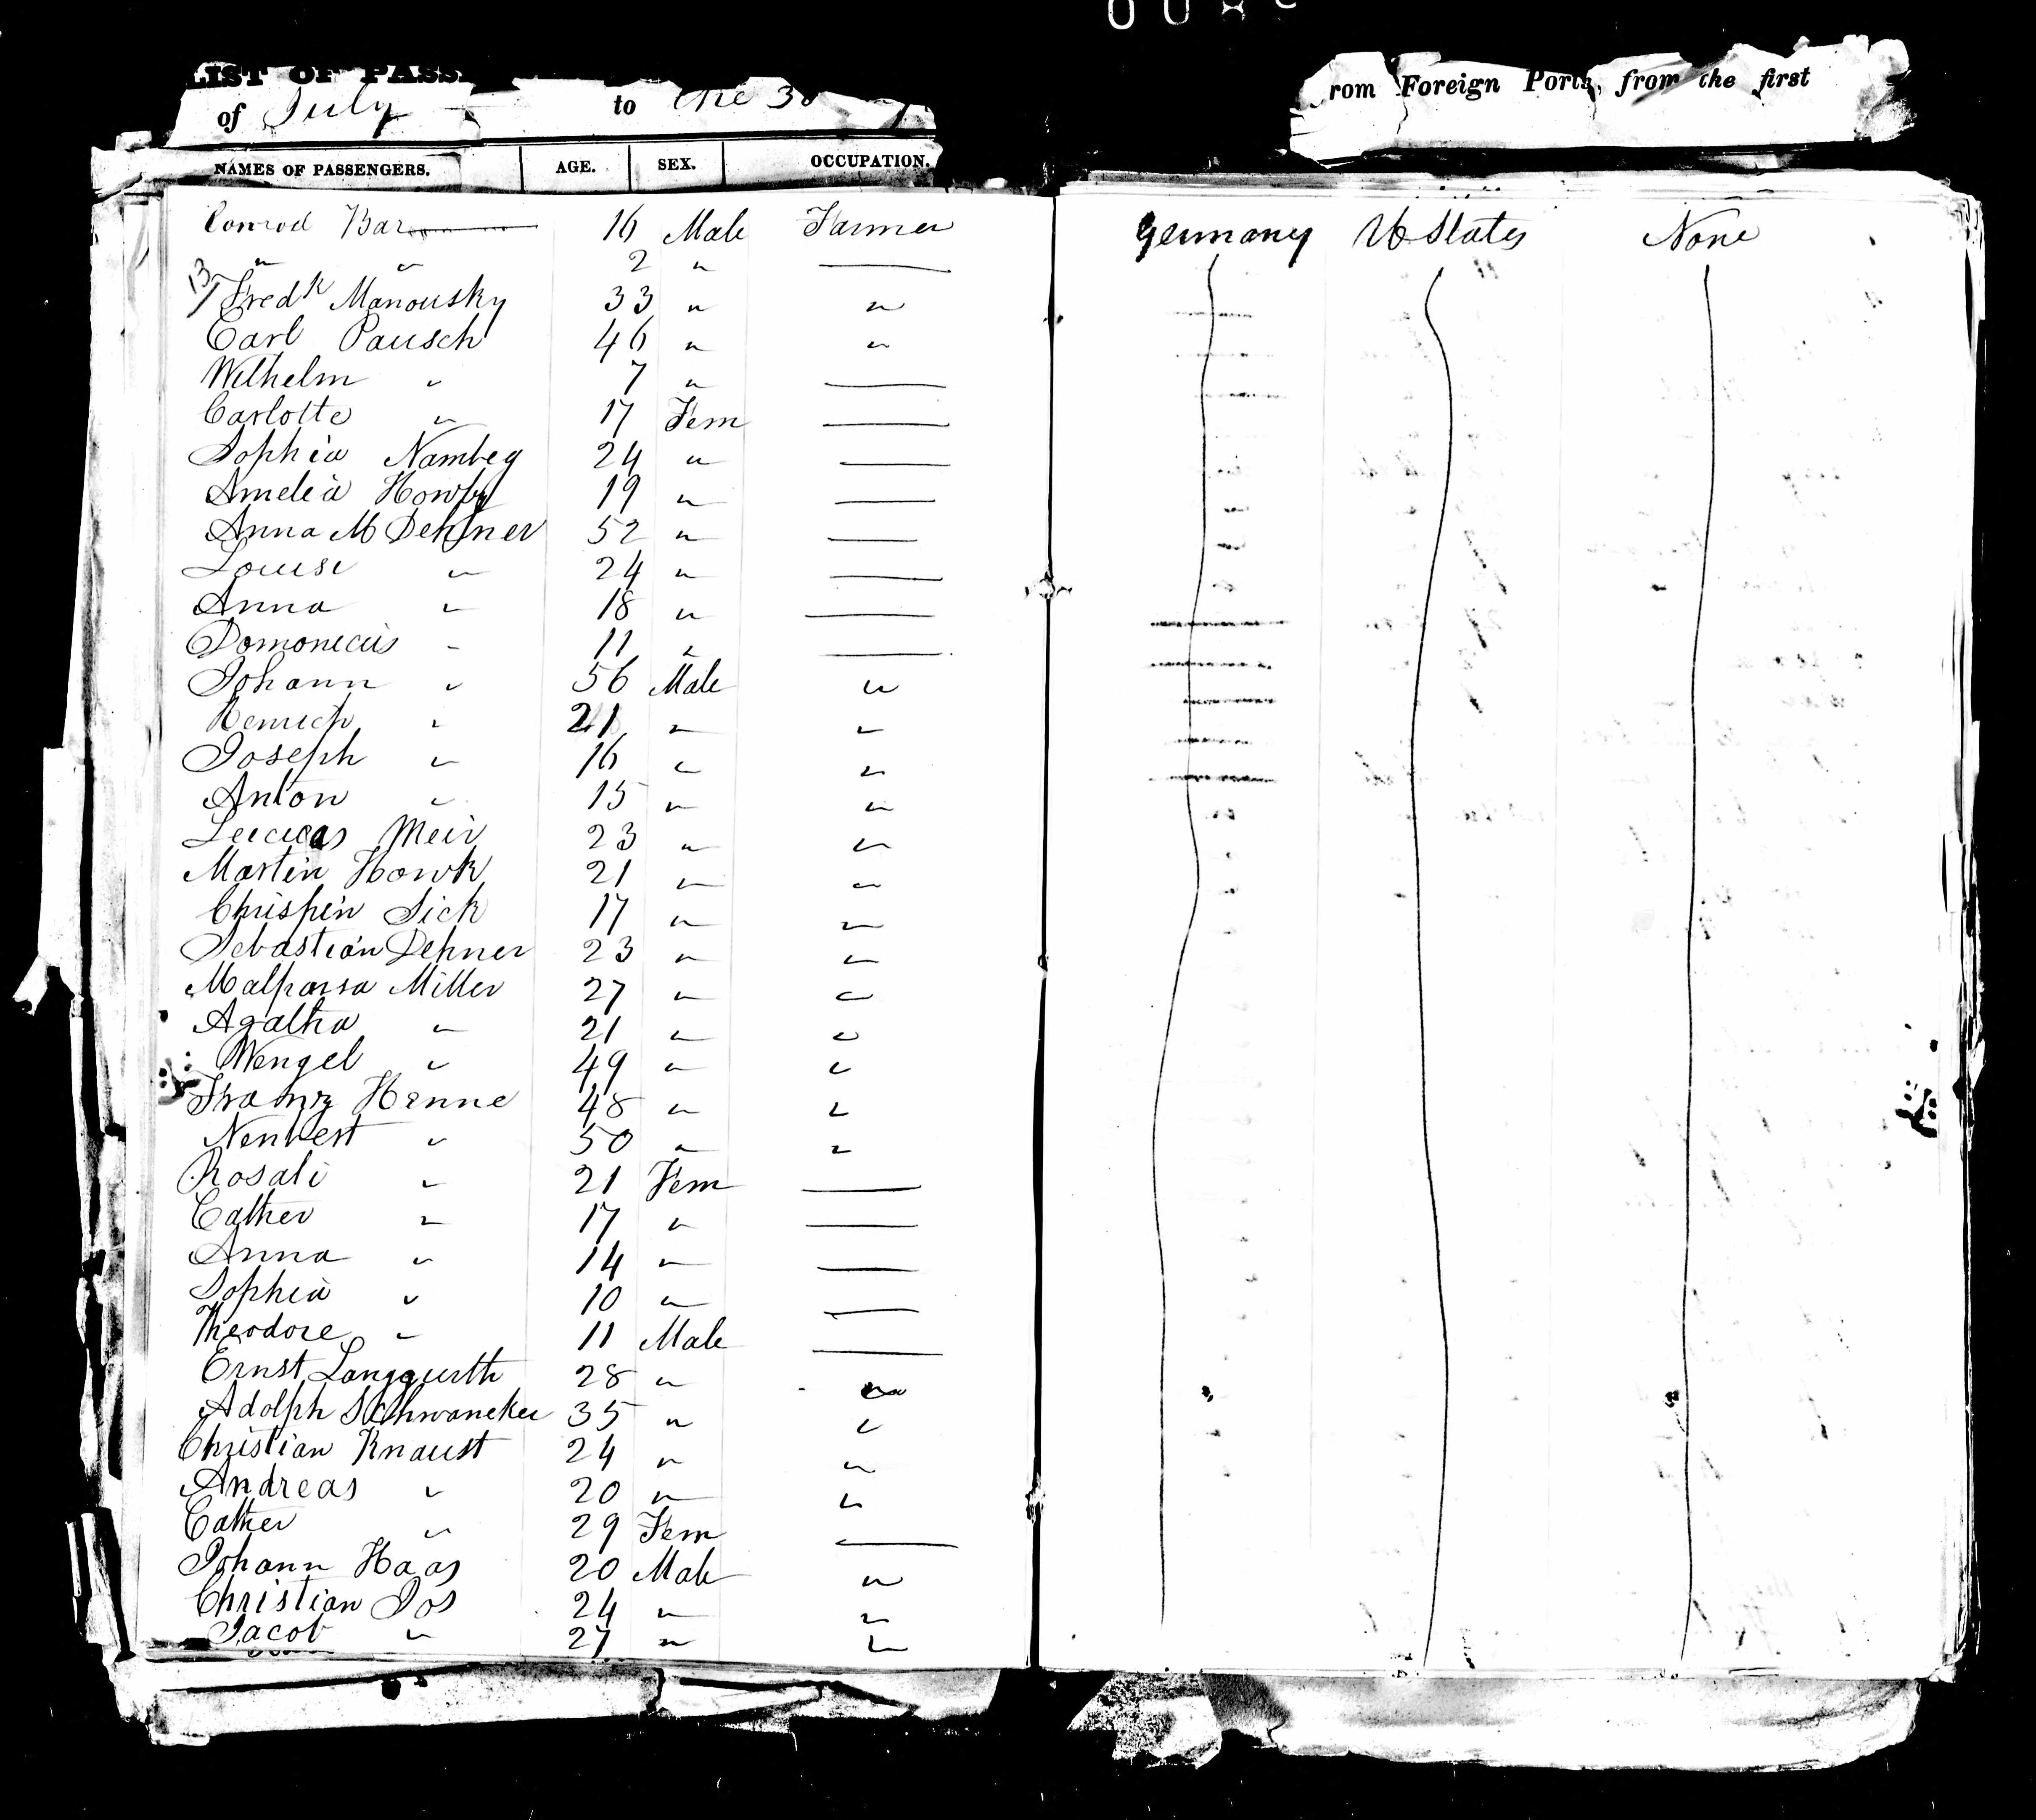 LIST OF PASS
rom Foreign Ports, from the first
of July to the 30
NAMES OF PASSENGERS. AGE. SEX. OCCUPATION.
Conrod Bar 16 Male Farmer Germany U States None
" " 2 "
13 Fredk Manousky 33 " "
Carl Pausch 46 " "
Wilhelm " 7 "
Carlotte " 17 Fem
Sophia Nambeg 24 "
Amelia 19 "
Anna M Dehner 52 "
Louise " 24 "
Anna " 18 "
Domonecus " 11 "
Johann " 56 Male "
Henrich " 21 " "
Joseph " 16 " "
Anton " 15 " "
Luccas Meir 23 " "
Martin Howk 21 " "
Chrispin Sick 17 " "
Sebastian Dehner 23 " "
Malpassa Miller 27 " "
Agatha " 21 " "
Wengel " 49 " "
Frantz Henne 48 " "
" 50 " "
Rosali " 21 Fem
Cather " 17 "
Anna " 14 "
Sophia " 10 "
Theodore " 11 Male
Ernst Langguth 28 " "
Adolph Schwaneker 35 " "
Christian Knaust 24 " "
Andreas " 20 " "
Cather " 29 Fem
Johann Haas 20 Male "
Christian Jos 24 " "
Jacob " 27 " "